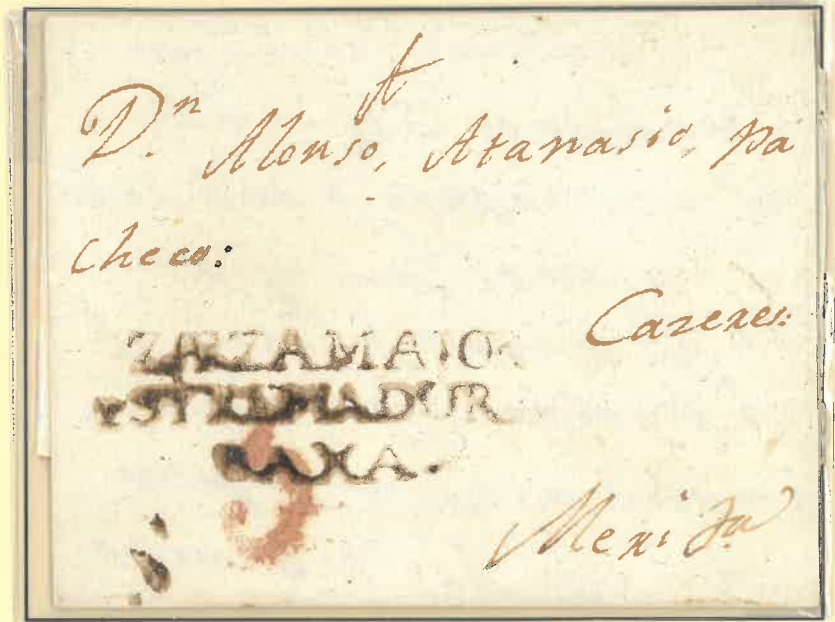 Dn Alonso, Atanasio, Pa
checo:
Cazeres:
ZARZAMAIOR
ESTREMADUR
BAXA.
5
Merida